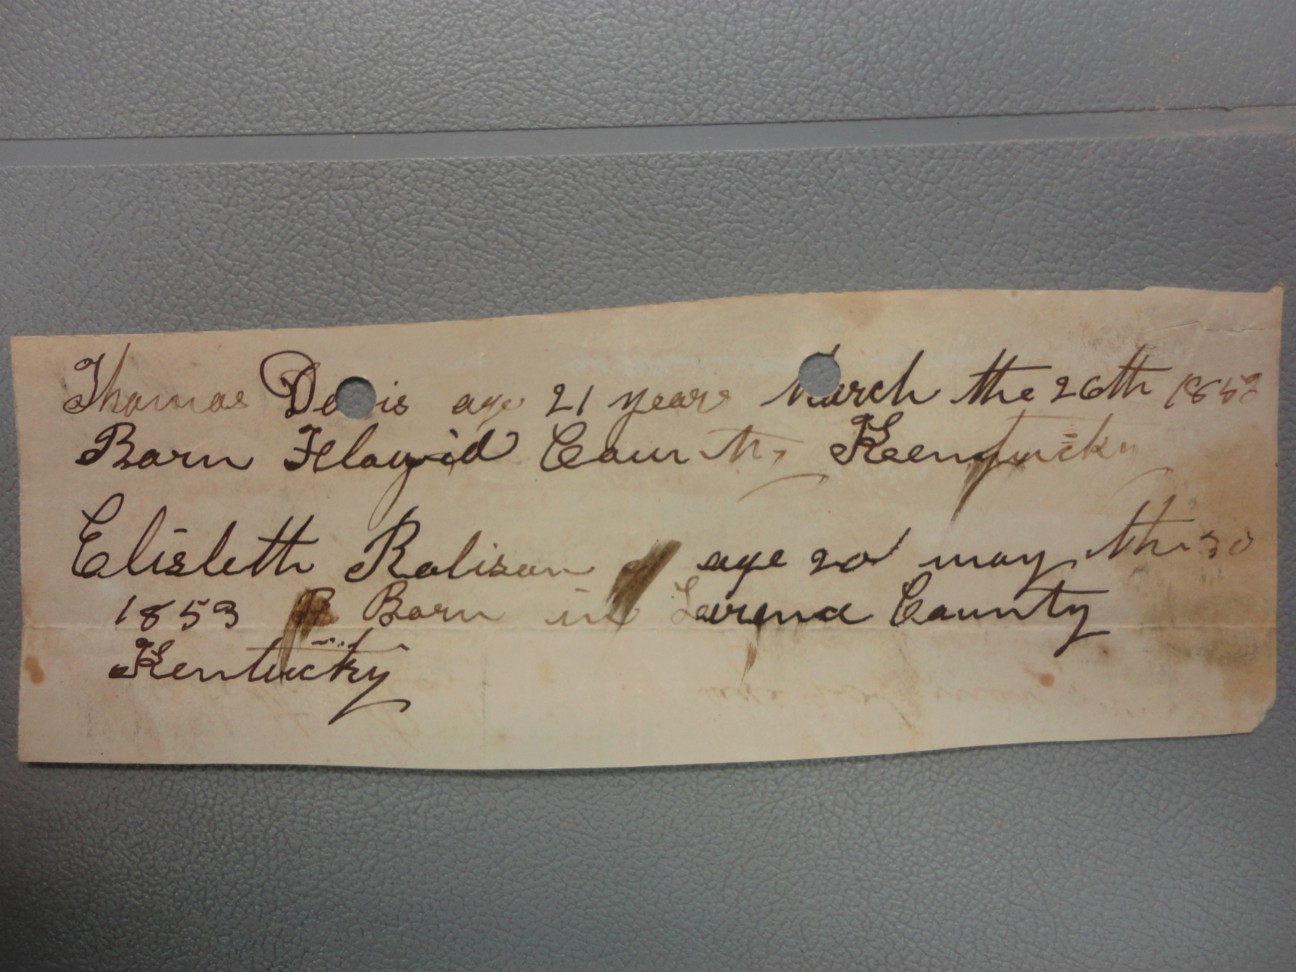 Thomas Davis age 21 years March the 26th 1853
Born Floyid County Kentucky
Elisleth Ralison age 20 may the 30
1853 Born in Larence County
Kentucky